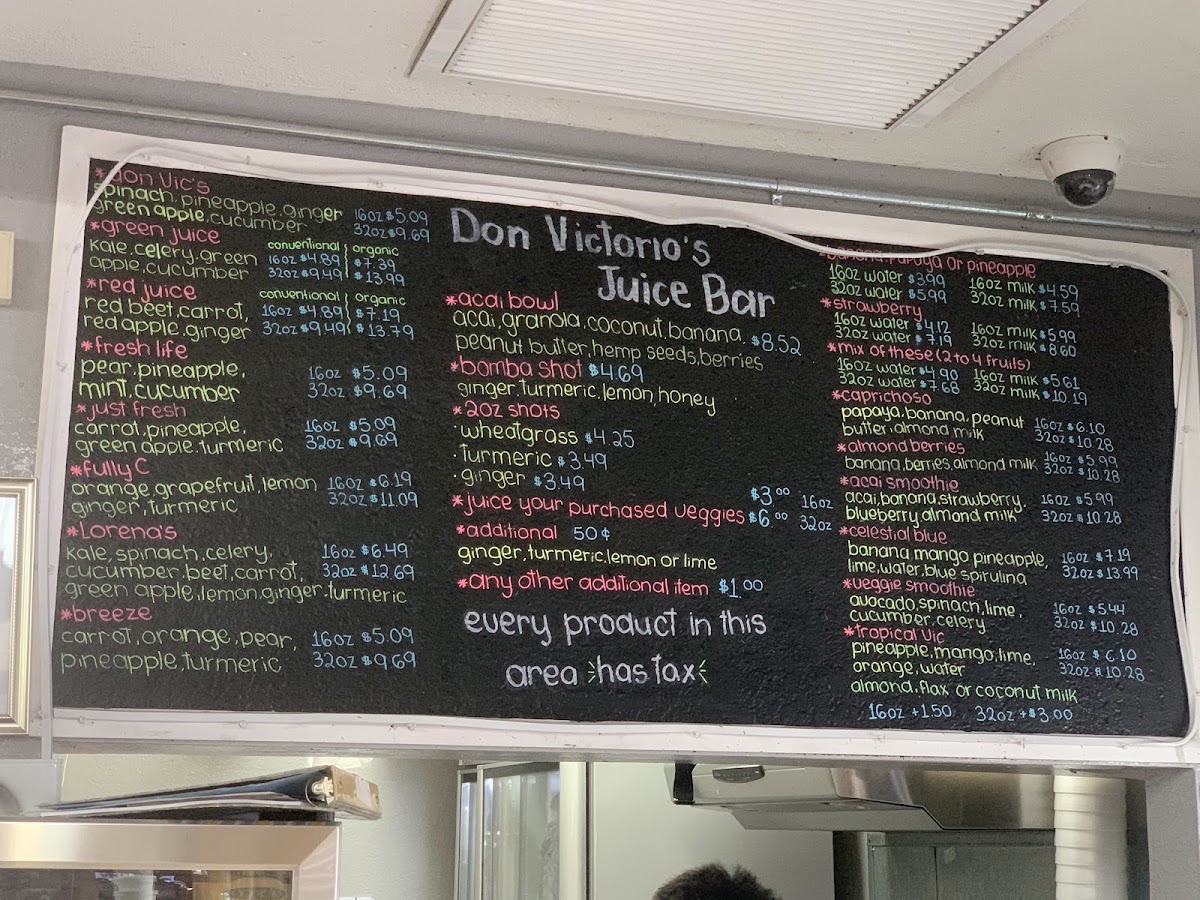 *don Vic's
spinach, pineapple, ginger 16oz $5.09
green apple, cucumber 32oz $9.69
*green juice
conventional organic
kale, celery, green 16oz $4.89 $7.39
apple, cucumber 32oz $9.49 $13.99
*red juice
conventional organic
red beet, carrot, 16oz $4.89 $7.19
red apple, ginger 32oz $9.49 $13.79
*fresh life
pear, pineapple, 16oz $5.09
mint, cucumber 32oz $9.69
*just fresh
carrot, pineapple, 16oz $5.09
green apple, turmeric 32oz $9.69
*fully C
orange, grapefruit, lemon 16oz $6.19
ginger, turmeric 32oz $11.09
*Lorena's
kale, spinach, celery, 16oz $6.49
cucumber, beet, carrot, 32oz $12.69
green apple, lemon, ginger, turmeric
*breeze
carrot, orange, pear, 16oz $5.09
pineapple, turmeric 32oz $9.69
Don Victorio's
Juice Bar
*acai bowl
acai, granola, coconut, banana, $8.52
peanut butter, hemp seeds, berries
*bomba shot $4.69
ginger, turmeric, lemon, honey
*2oz shots
·wheatgrass $4.25
·turmeric $3.49
·ginger $3.49
*juice your purchased veggies $3.00 16oz
$6.00 32oz
*additional 50¢
ginger, turmeric, lemon or lime
*any other additional item $1.00
every product in this
area has tax
banana, papaya or pineapple
16oz water $3.99 16oz milk $4.59
32oz water $5.99 32oz milk $7.59
*strawberry
16oz water $4.12 16oz milk $5.99
32oz water $7.19 32oz milk $8.60
*mix of these (2 to 4 fruits)
16oz water $4.90 16oz milk $5.61
32oz water $7.68 32oz milk $10.19
*caprichoso
papaya, banana, peanut 16oz $6.10
butter, almond milk 32oz $10.28
*almond berries
banana, berries, almond milk 16oz $5.99
32oz $10.28
*acai smoothie
acai, banana, strawberry, 16oz $5.99
blueberry, almond milk 32oz $10.28
*celestial blue
banana, mango, pineapple, 16oz $7.19
lime, water, blue spirulina 32oz $13.99
*veggie smoothie
avocado, spinach, lime, 16oz $5.44
cucumber, celery 32oz $10.28
*tropical vic
pineapple, mango, lime, 16oz $6.10
orange, water 32oz $10.28
almond, flax or coconut milk
16oz +1.50 32oz +$3.00